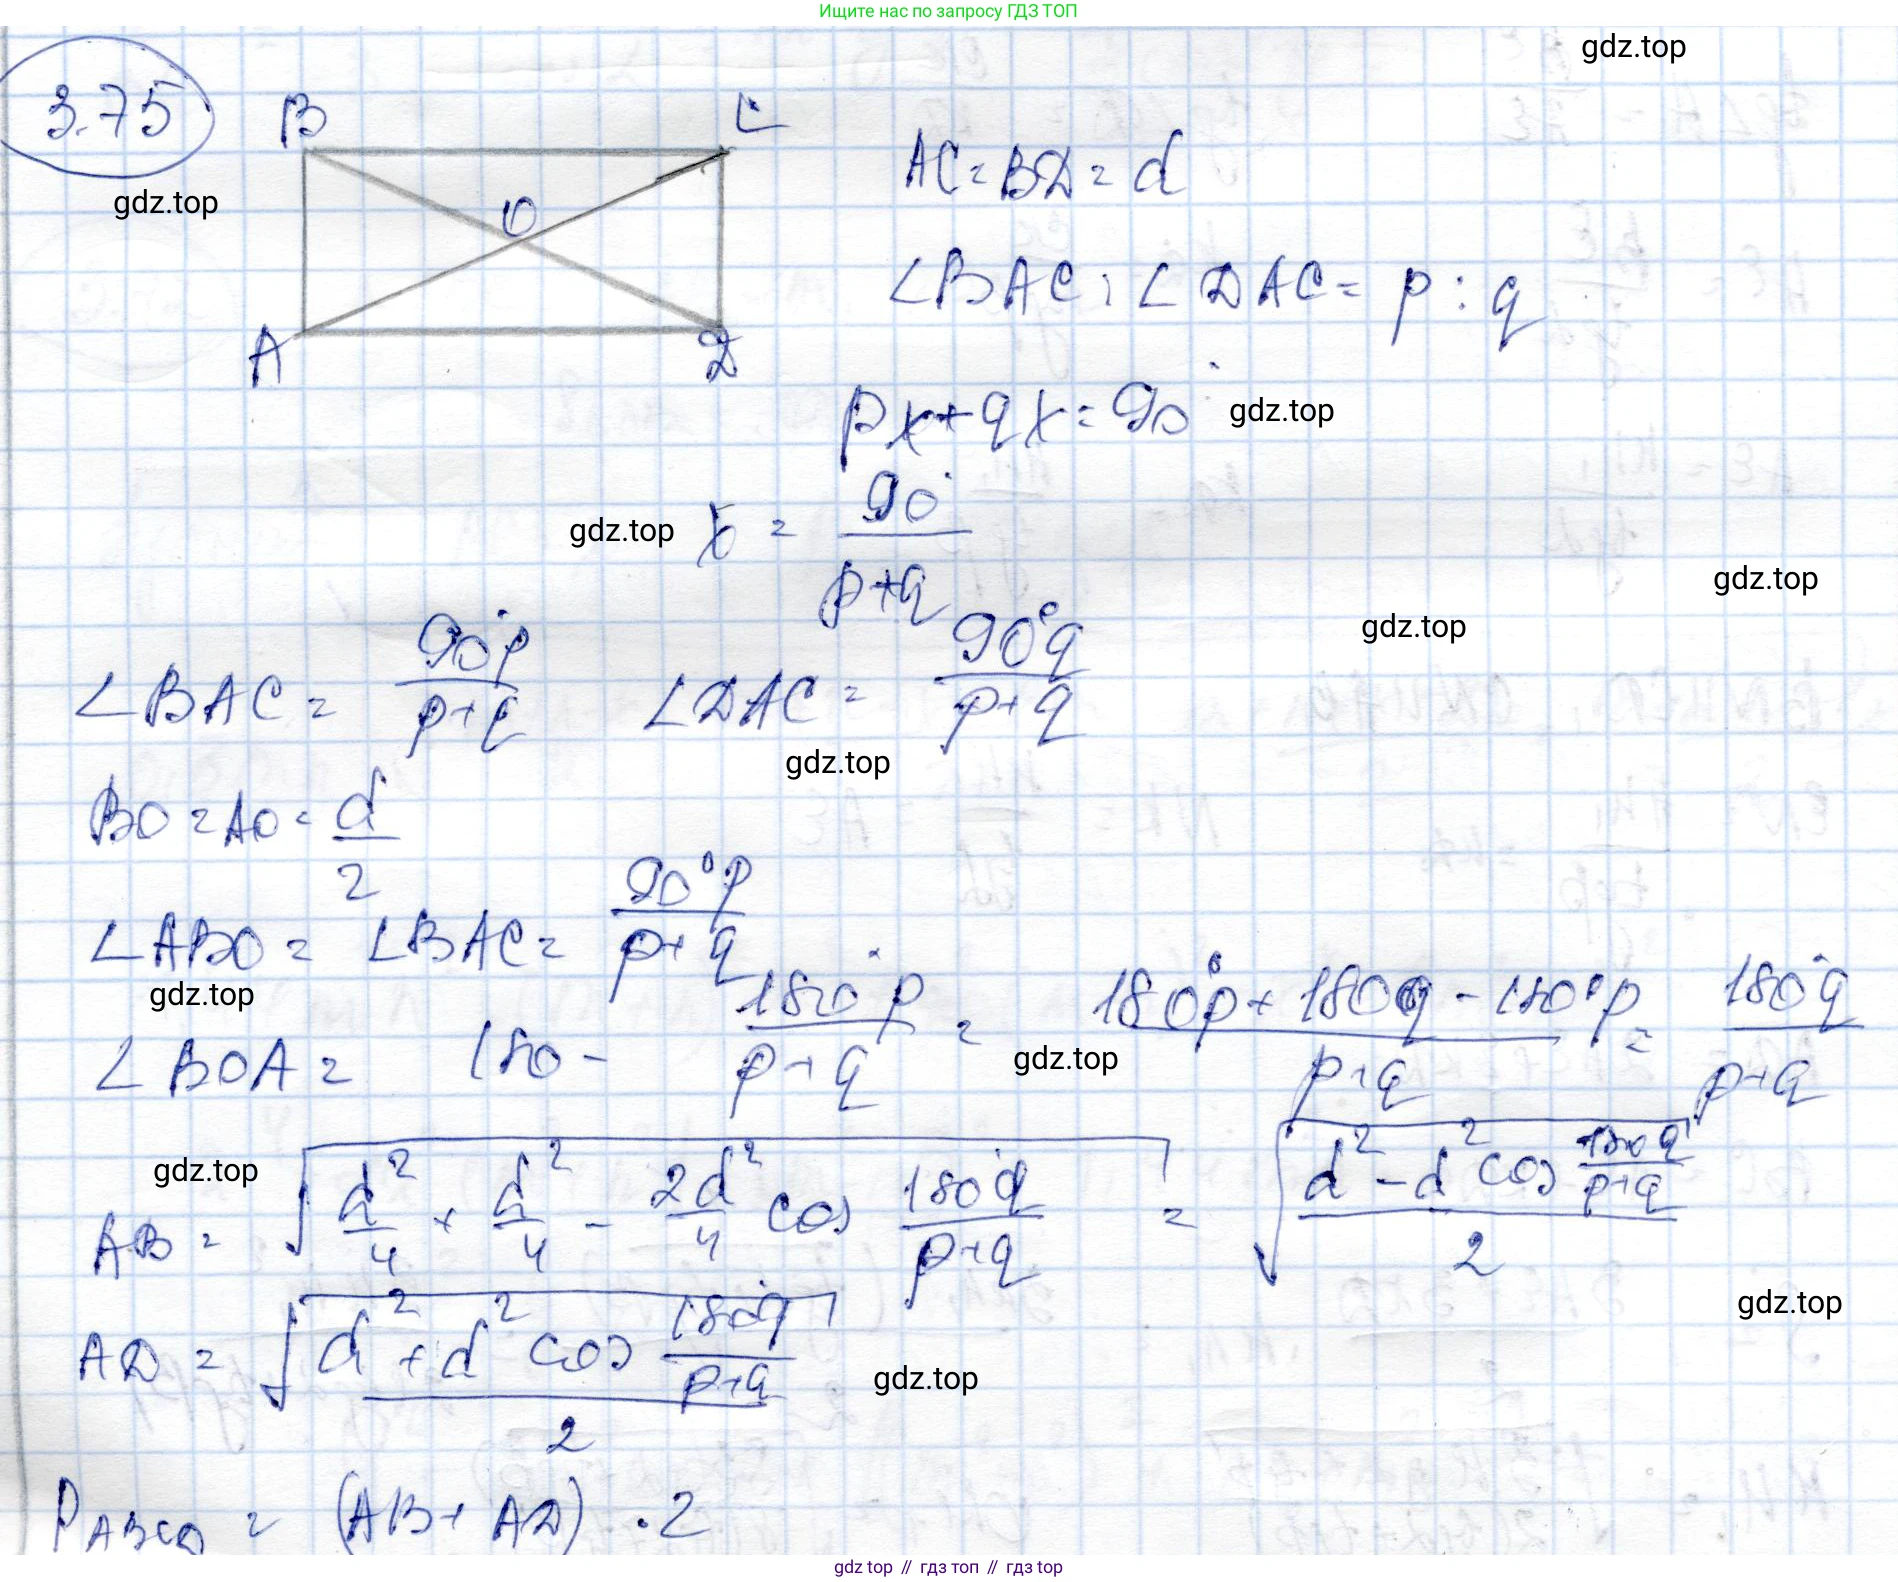 Ищите нас по запросу ГДЗ ТОП
gdz.top
3.75
B C
O
A D
gdz.top
AC = BD = d
∠BAC : ∠DAC = p : q
px + qx = 90° gdz.top
gdz.top x = 90° / (p+q)
gdz.top
gdz.top
∠BAC = 90°p / (p+q) ∠DAC = 90°q / (p+q)
gdz.top
BO = AO = d/2
∠ABO = ∠BAC = 90°p / (p+q)
gdz.top
∠BOA = 180 - 180°p / (p+q) = (180°p + 180q - 180°p) / (p+q) = 180°q / (p+q)
gdz.top
gdz.top
AB = √(d²/4 + d²/4 - 2d²/4 cos 180°q/(p+q)) = √((d² - d² cos 180q/(p+q)) / 2)
gdz.top
AD = √((d² + d² cos 180°q/(p+q)) / 2)
gdz.top
P ABCD = (AB + AD) · 2
gdz top // гдз топ // гдз top